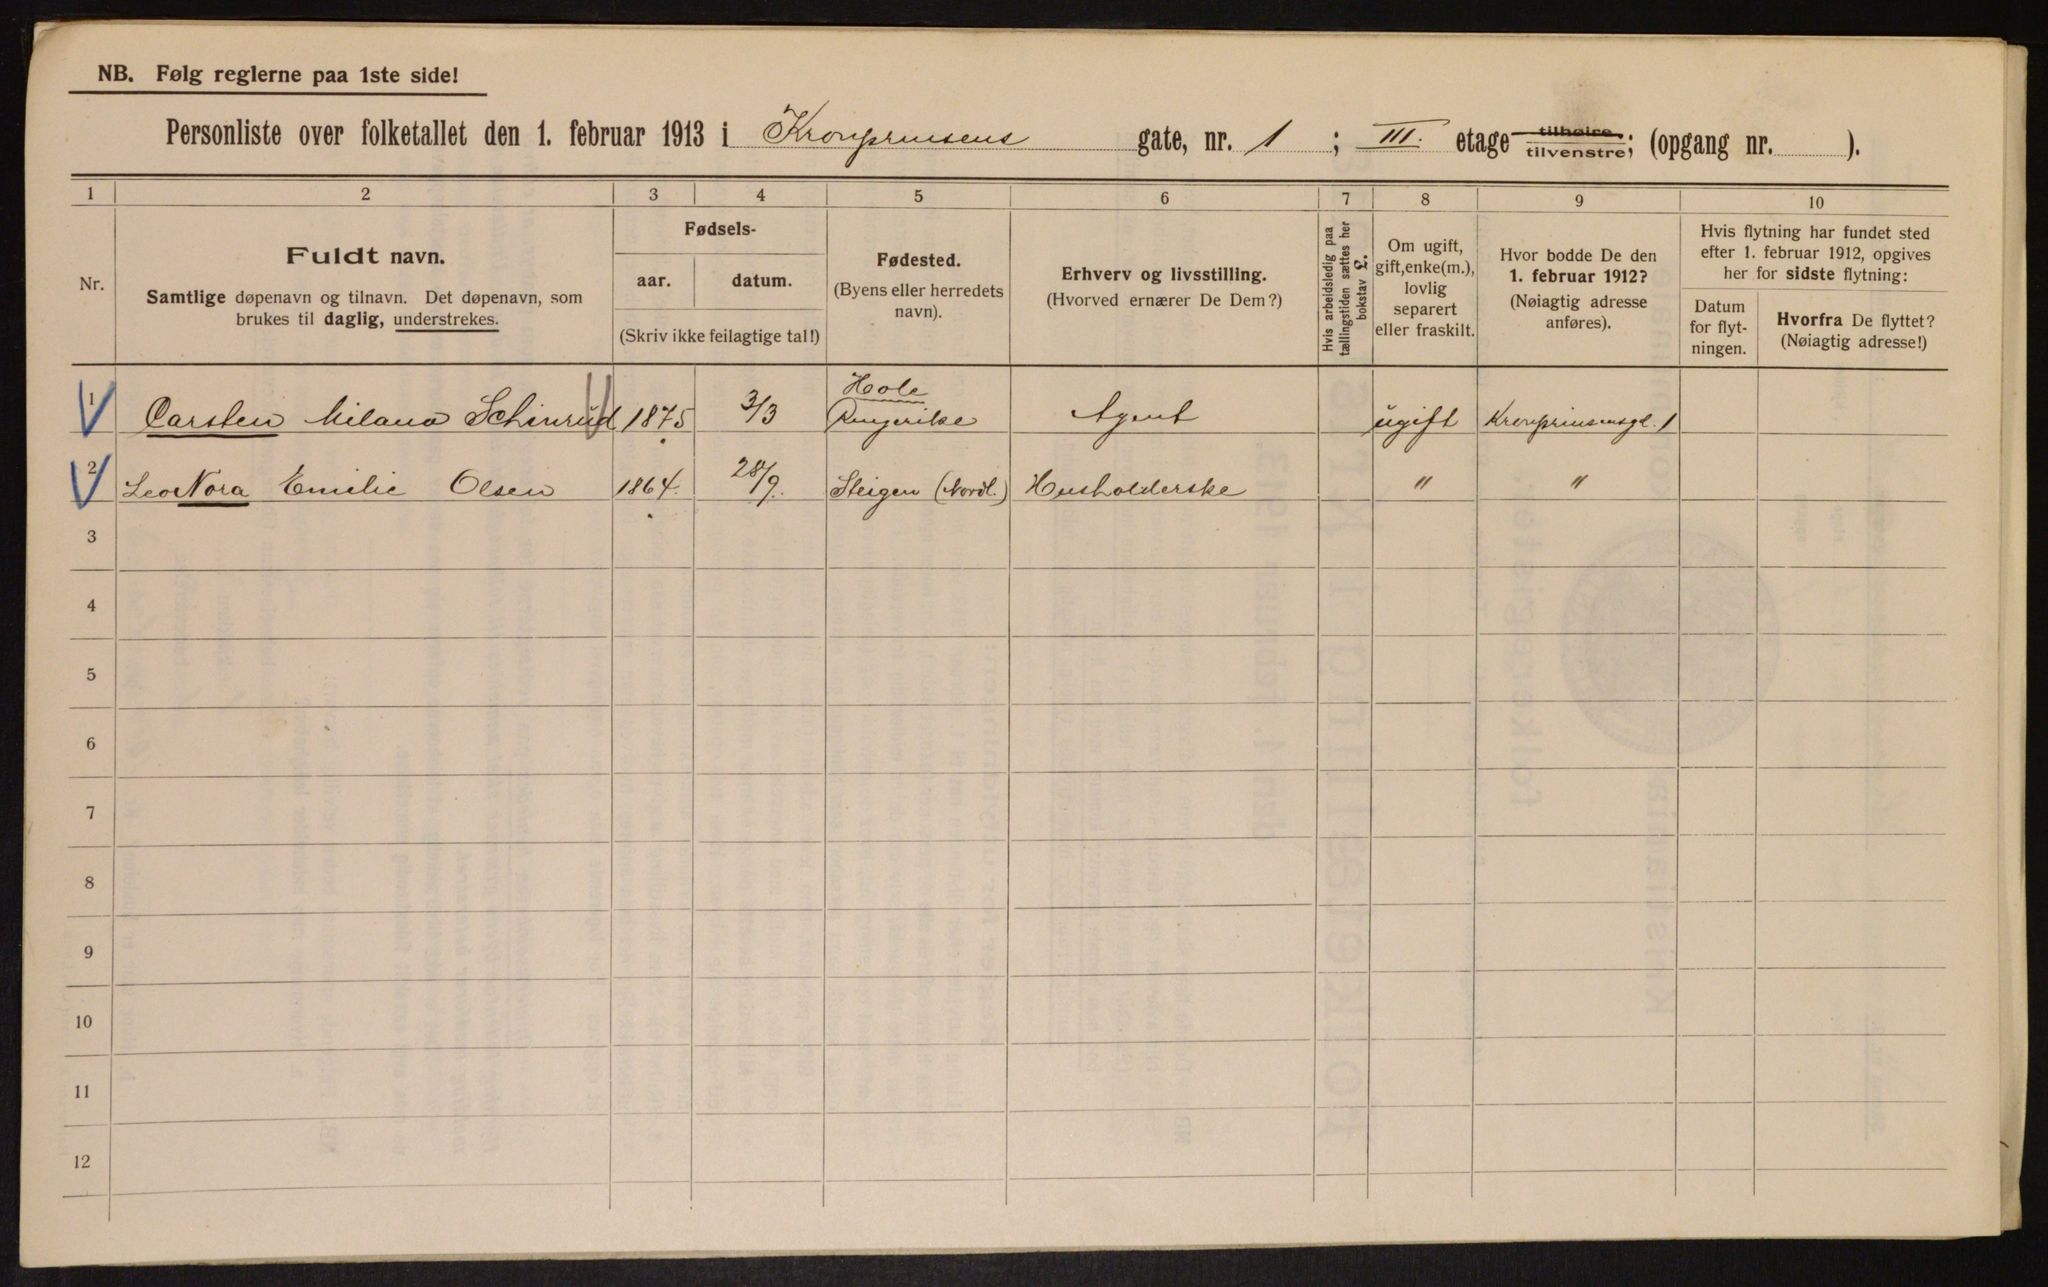 NB. Følg reglerne paa 1ste side!
Personliste over folketallet den 1. februar 1913 i Kronprinsens gate, nr. 1 ; III. etage tilhøire tilvenstre; (opgang nr. ).
1 2 3 4 5 6 7 8 9 10
Nr.
Fuldt navn.
Samtlige døpenavn og tilnavn. Det døpenavn, som
brukes til daglig, understrekes.
Fødsels-
aar. datum.
(Skriv ikke feilagtige tal!)
Fødested.
(Byens eller herredets
navn).
Erhverv og livsstilling.
(Hvorved ernærer De Dem?)
Hvis arbeidsledig paa
tællingstiden sættes her
bokstav L.
Om ugift,
gift, enke(m.),
lovlig
separert
eller fraskilt.
Hvor bodde De den
1. februar 1912?
(Nøiagtig adresse
anføres).
Hvis flytning har fundet sted
efter 1. februar 1912, opgives
her for sidste flytning:
Datum
for flyt-
ningen.
Hvorfra De flyttet?
(Nøiagtig adresse!)
Hole
1 Carsten Milano Schinrud 1875 3/3 Ringerike Agent ugift Kronprinsensgt. 1
2 LeoNora Emilie Olsen 1864. 28/9. Steigen (Nordl.) Husholderske " "
3
4
5
6
7
8
9
10
11
12